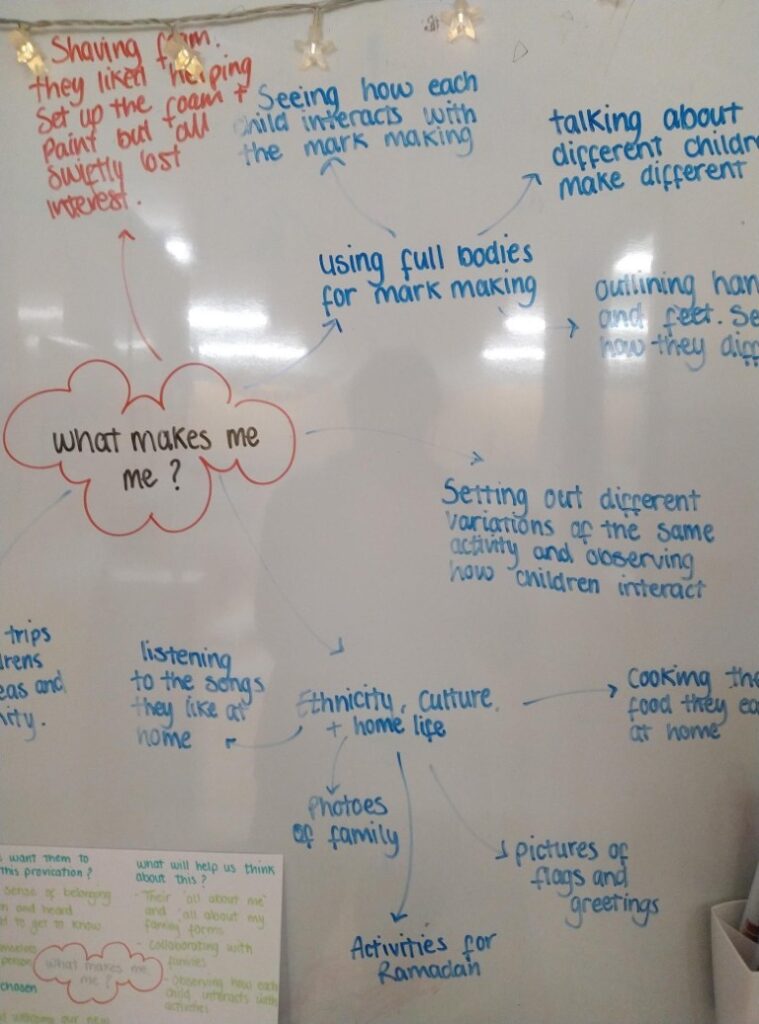 Shaving foam.
they liked helping
set up the foam +
paint but all
swiftly lost
interest.
Seeing how each
child interacts with
the mark making
talking about
different
make different
using full bodies
for mark making
outlining
and feet.
how they
what makes me
me ?
Setting out different
variations of the same
activity and observing
how children interact
trips
and
listening
to the songs
they like at
home
Ethnicity, culture,
+ home life
Cooking
food they
at home
Photoes
of family
pictures of
flags and
greetings
Activities for
Ramadan
want them to
this provication ?
sense of belonging
and heard
to get to know
what makes me
me ?
chosen
welcoming our new
what will help us think
about this ?
- Their 'all about me'
and 'all about my
family forms
- Collaborating with
families
- Observing how each
child interacts with
activities